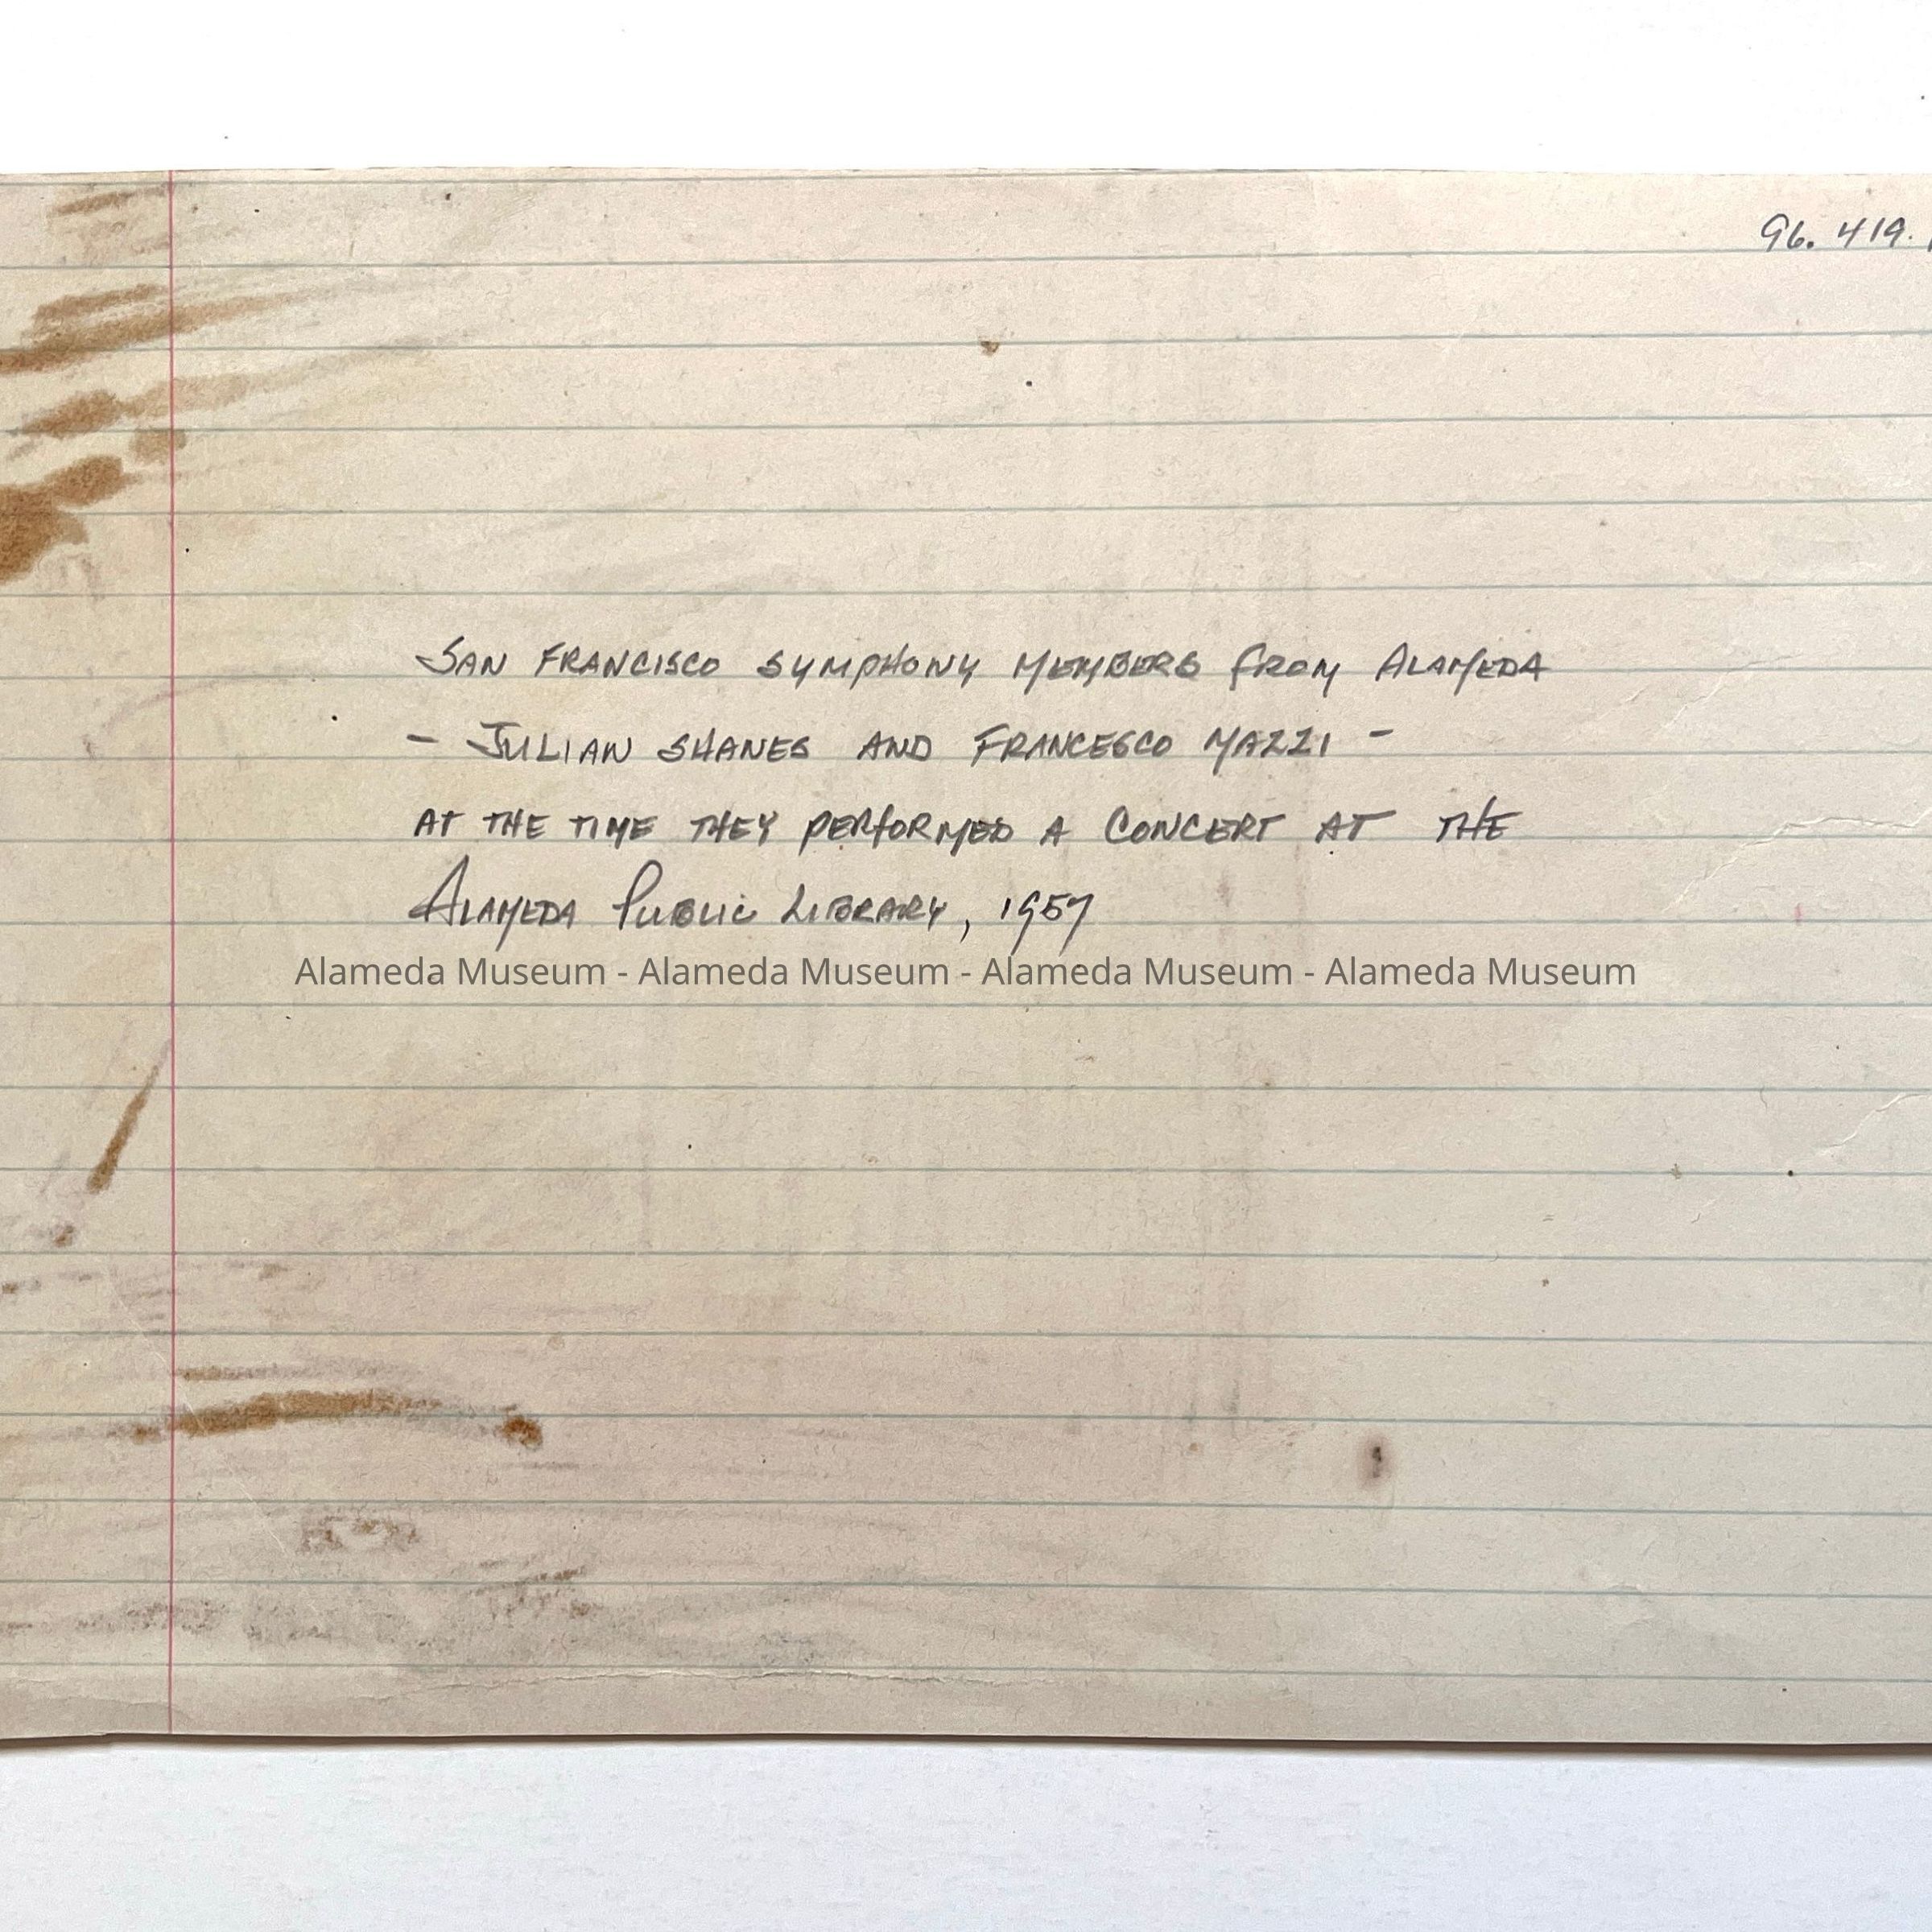 96. 419.
San Francisco Symphony Members from Alameda
- Julian Shanes and Francesco Mazzi -
at the time they performed a concert at the
Alameda Public Library, 1957
Alameda Museum - Alameda Museum - Alameda Museum - Alameda Museum